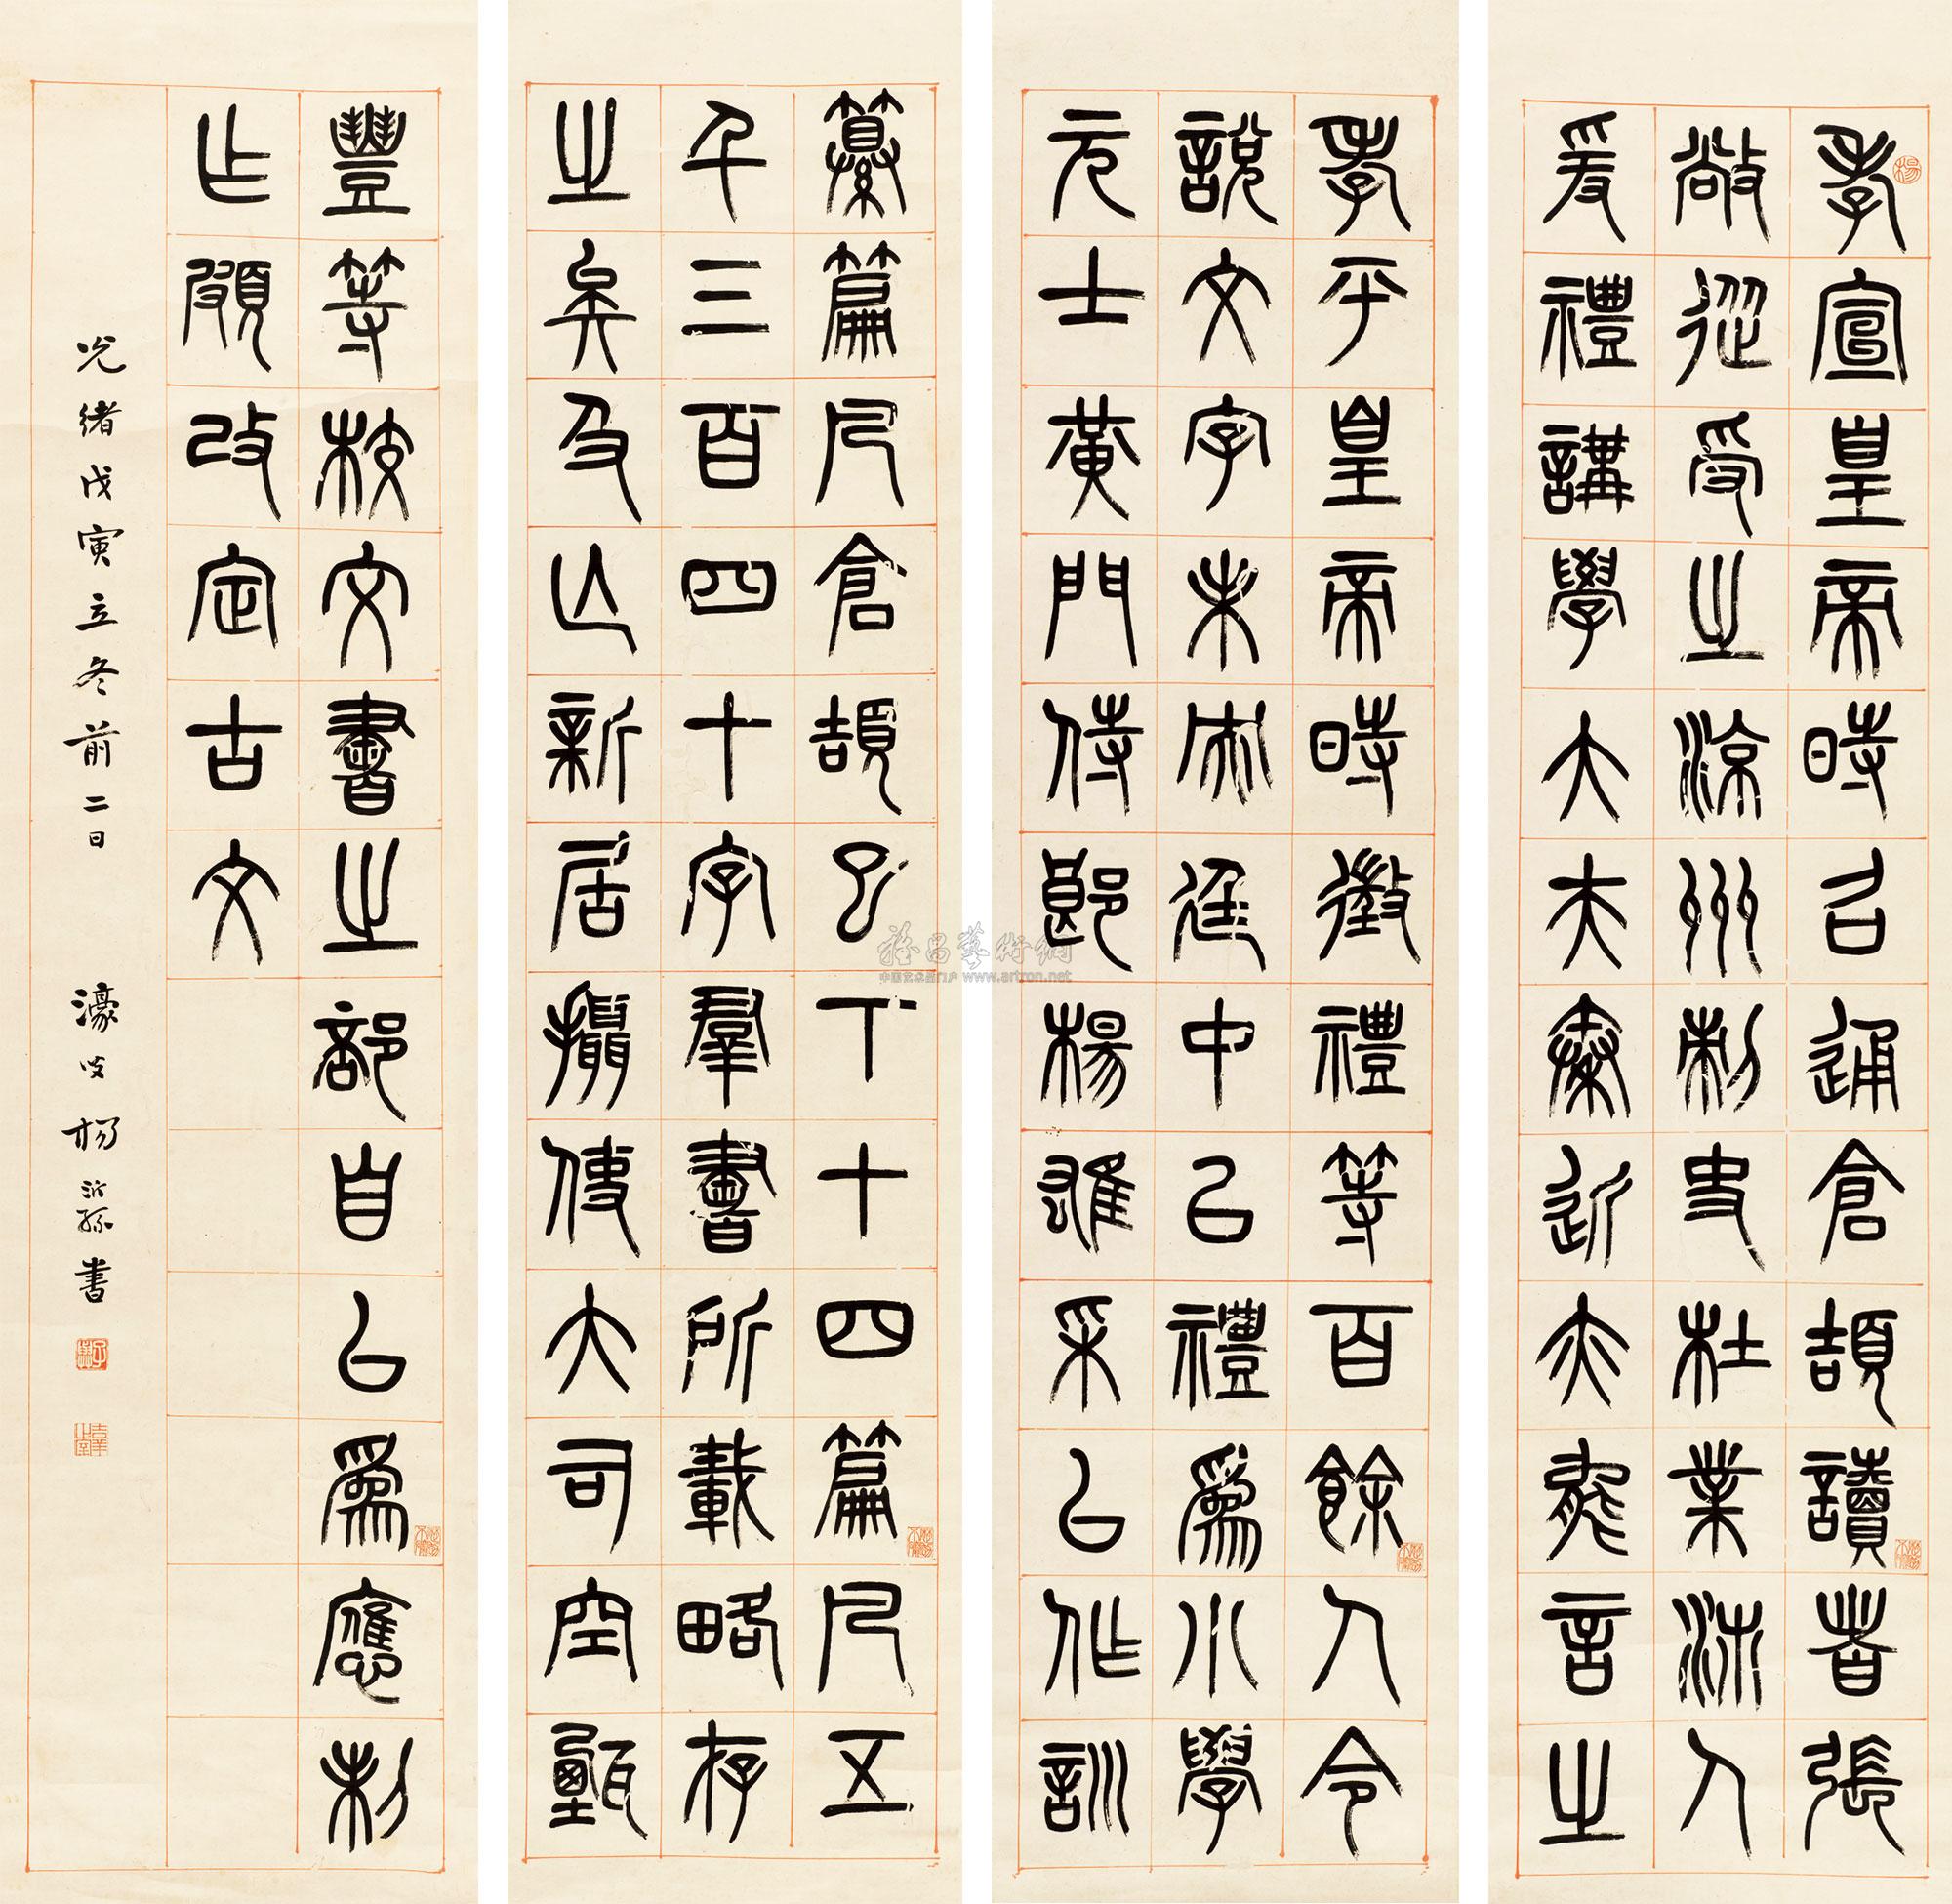 孝宣皇帝時召通倉頡讀者張
敞從受之涼州刺史杜業沛人
爰禮講學大夫秦近亦能言之
孝平皇帝時徵禮等百餘人令
說文字未央廷中以禮爲小學
元士黃門侍郎楊雄采以作訓
纂篇凡倉頡已下十四篇凡五
千三百四十字羣書所載略存
之矣及亡新居攝使大司空甄
豐等校文書之部自以爲應制
作頗改定古文
光緒戊寅立冬前二日 濠叟楊沂孫書
楊
雅昌藝術網
中国艺术品门户 www.artron.net